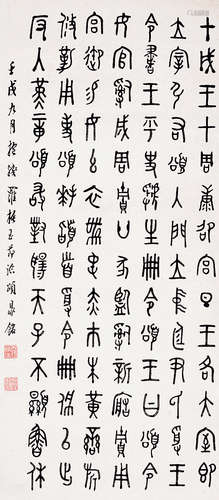 甲戌王才周康卲宮旦王各大室即
立宰引右頌入門立中廷尹氏受王
令書王乎史虢生冊令頌王曰頌令
女官𤔲成周賈廿家監𤔲新造賈用
宮御易女玄衣黹屯赤巿朱黃䜌旂
攸勒用事頌拜𩒨首受令冊佩以出
反入堇章頌敢對揚天子不顯魯休
壬戌九月羅振玉節臨頌鼎銘